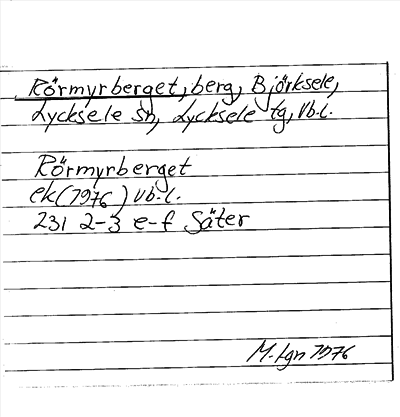 Rörmyrberget, berg, Björksele,
Lycksele sn, Lycksele tg, Vb.l.
Rörmyrberget
ek(1976) Vb.l.
231 2-3 e-f Säter
M. Lgn 1976